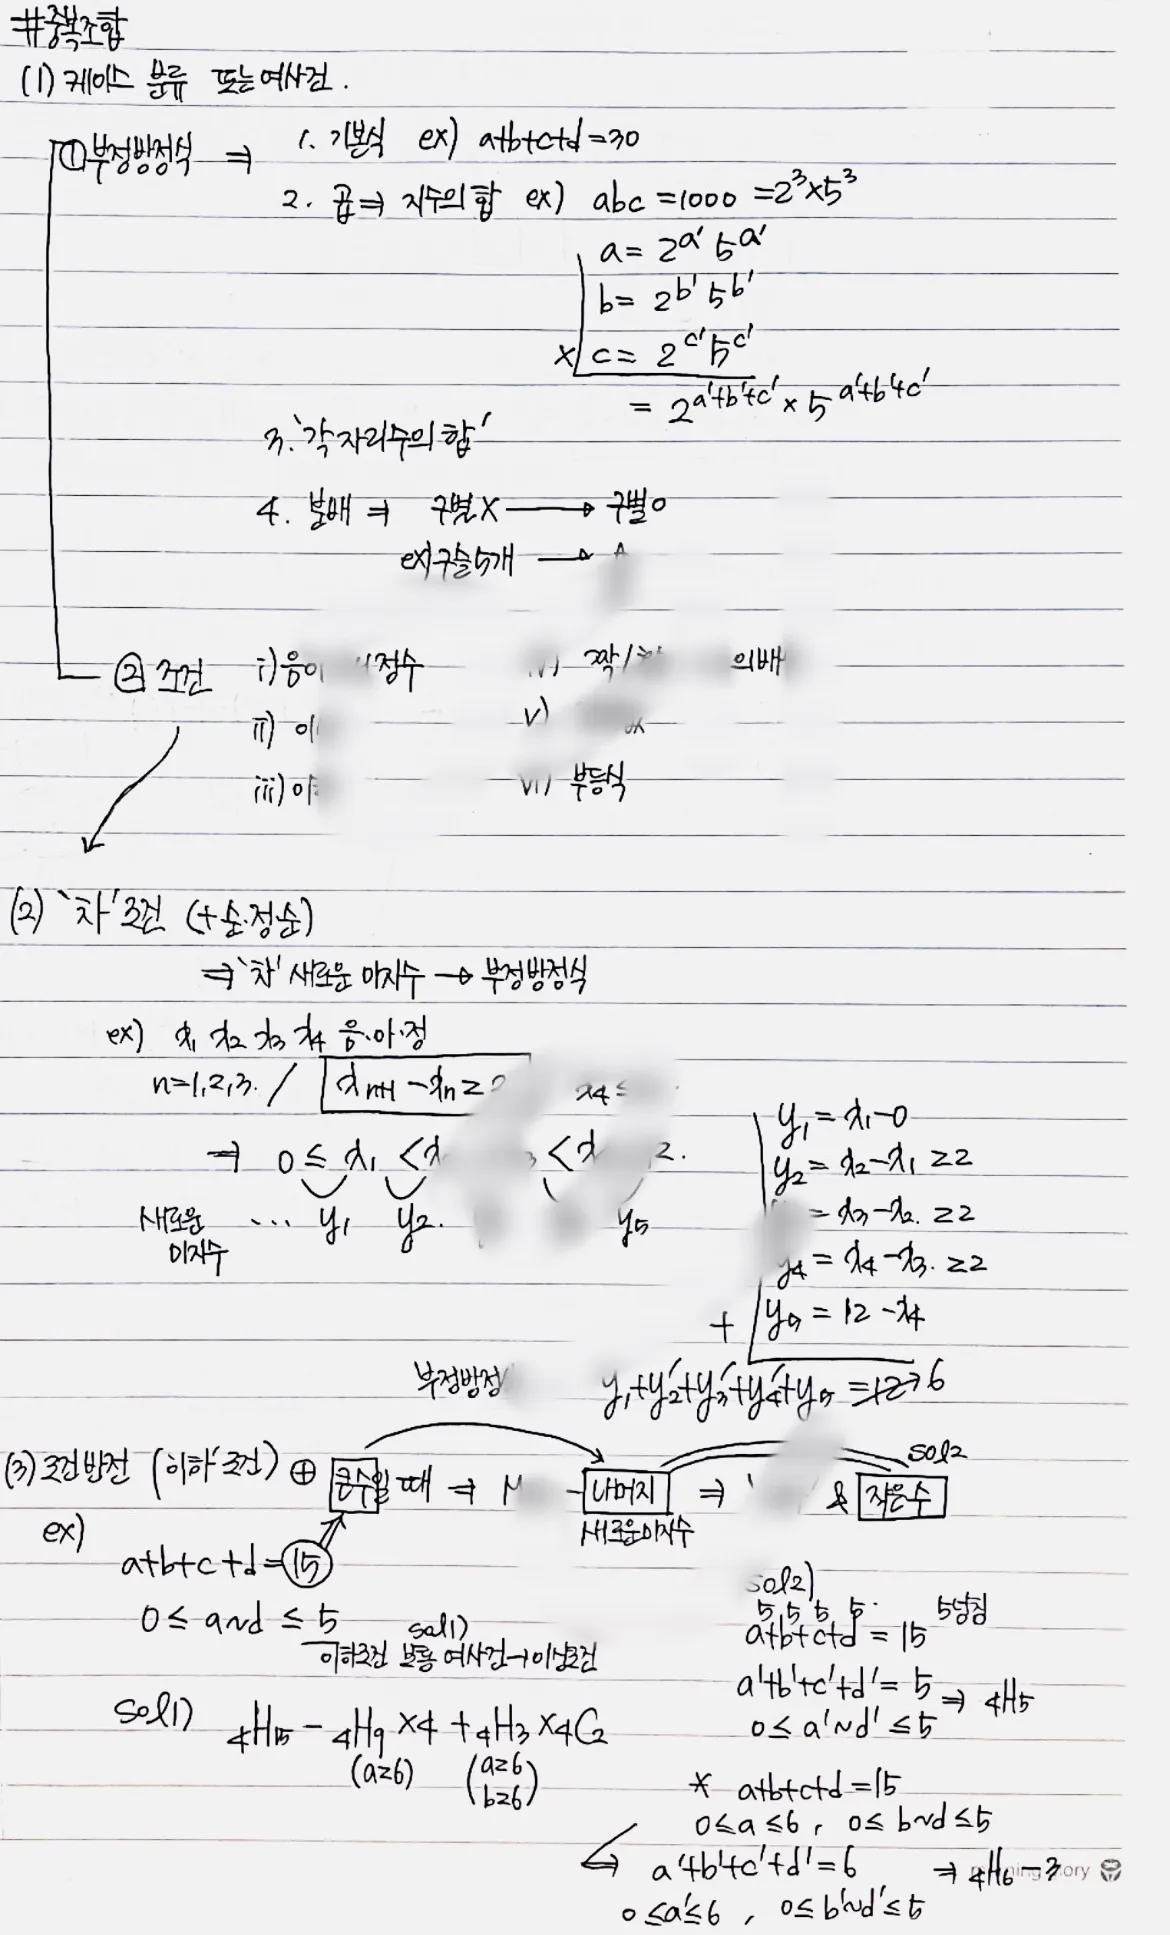 #중복조합
(1) 케이스 분류 또는 여사건.
①부정방정식 ⇒ 1. 기본식 ex) a+b+c+d=30
2. 곱⇒ 지수의 합 ex) abc=1000=2³×5³
a= 2^a' 5^a'
b= 2^b' 5^b'
× c= 2^c' 5^c'
= 2^a'+b'+c' × 5^a'+b'+c'
3. '각 자리수의 합'
4. 분배 ⇒ 구별X → 구별O
ex)구슬5개 →
② 조건 i)음 정수 짝/ 의배
ii) 이 v)
iii) 이 vi) 부등식
(2) '차'조건 (+순·정순)
⇒ '차' 새로운 미지수 → 부정방정식
ex) x₁ x₂ x₃ x₄ 음·아·정
n=1,2,3. / xₙ₊₁ -xₙ≥ x₄≤
⇒ 0 ≤ x₁ < < 2.
새로운 미지수 ... y₁ y₂. y₅
y₁ = x₁-0
y₂= x₂-x₁ ≥2
= x₃-x₂. ≥2
y₄ = x₄-x₃. ≥2
+ y₅ = 12 -x₄
부정방정 y₁+y₂'+y₃'+y₄'+y₅ =12→6
(3)조건반전 ('이하'조건) ⊕ 큰수일 때 ⇒ M - 나머지 ⇒ & 작은수
sol2
새로운미지수
ex)
a+b+c+d=15
0≤ a~d ≤ 5
sol1)
이하조건 보통 여사건→이상조건
sol1) ₄H₁₅ - ₄H₉ ×4 + ₄H₃ ×₄C₂
(a≥6) (a≥6 b≥6)
sol2)
5 5 5 5 5당첨
a+b+c+d = 15
a'+b'+c'+d'= 5 ⇒ ₄H₅
0≤ a'~d' ≤5
* a+b+c+d=15
0≤a≤6, 0≤ b~d ≤5
⇔ a'+b'+c'+d'=6 ⇒ ₄H₆-3
0≤a'≤6, 0≤b'~d'≤5